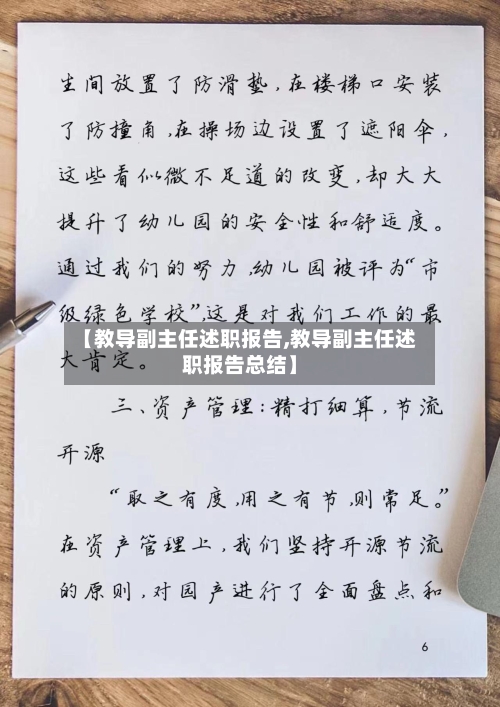 生间放置了防滑垫,在楼梯口安装
了防撞角,在操场边设置了遮阳伞,
这些看似微不足道的改变,却大大
提升了幼儿园的安全性和舒适度。
通过我们的努力,幼儿园被评为“市
级绿色学校”,这是对我们工作的最
【教导副主任述职报告,教导副主任述
职报告总结】
大肯定。
三、资产管理:精打细算,节流
开源
“取之有度,用之有节,则常足。”
在资产管理上,我们坚持开源节流
的原则,对园产进行了全面盘点和
6